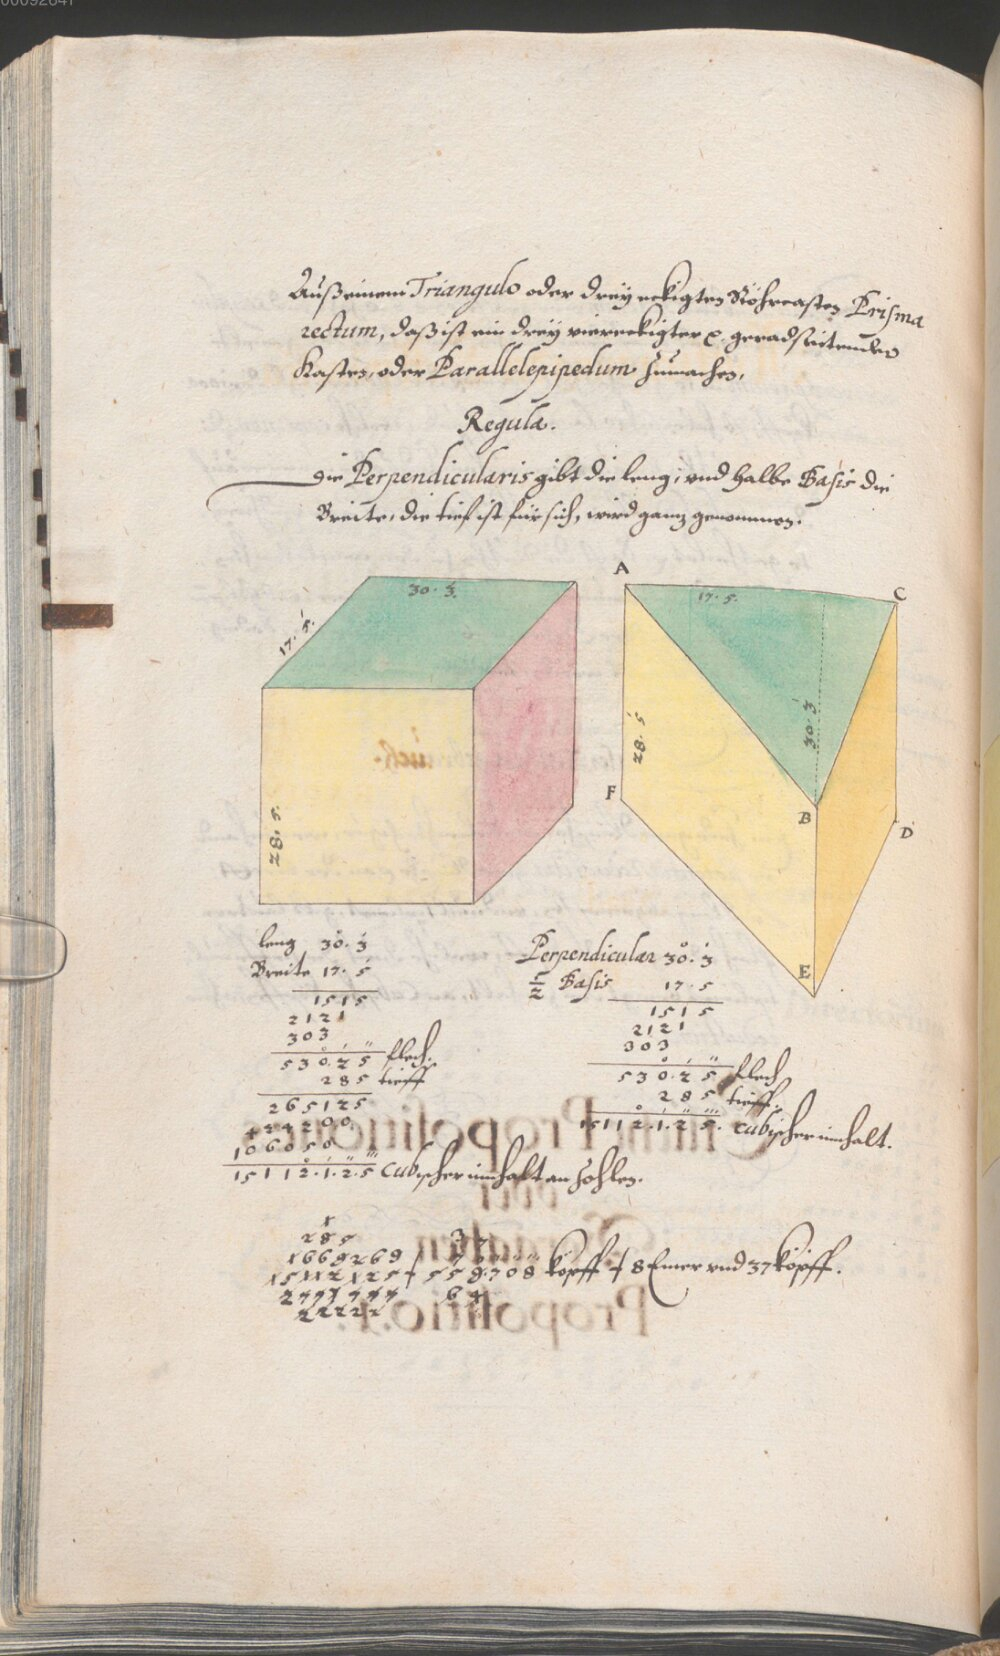 00092847
Auß einem Triangulo oder dreÿ eckigten Röhrcasten Prisma
rectum, daß ist ein dreÿ viereckigter geradseitender
Kasten, oder Parallelepipedum zumachen.
Regula.
Die Perpendicularis gibt die leng, vnd halbe Basis die
Breite, die tief ist für sich, wird ganz genommen.
30. 3
17. 5
28. 5
A
17. 5.
C
30. 3
28. 5
F
B
D
E
leng 30. 3
Breite 17. 5
1515
2121
303
530.25 flech.
285 tieff
265125
424200
10605
15112.1.2.5 Cubischer innhalt an Zohlen.
Perpendicular 30. 3
1/2 Basis 17. 5
1515
2121
303
530.25 flech
285 tieff.
15112.1.2.5. cubischer innhalt.
285
1669269
15112125 558.708 köpff 8 Emer vnd 37 köpff.
22222